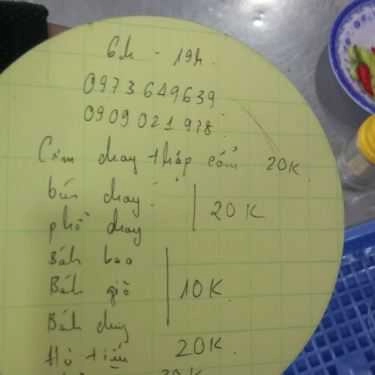 6h - 19h
0973649639
0909021978
Cơm chay thập cẩm 20K
bún chay
20K
phở chay
Bánh bao
Bánh giò
10K
Bánh
Hủ tiếu 20K
20K